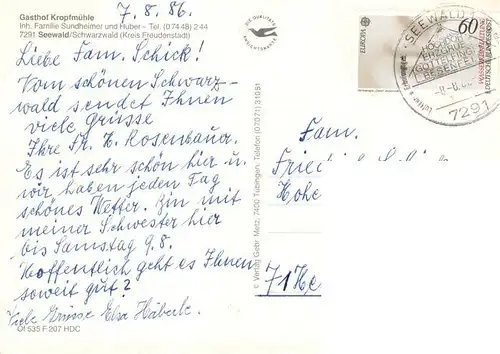 Gasthof Kropfmühle
Inh. Familie Sundheimer und Huber – Tel. (0 74 48) 2 44
7291 Seewald/Schwarzwald (Kreis Freudenstadt)
7.8.86.
Liebe Fam. Schick!
Vom schönen Schwarz-
wald sendet Ihnen
viele Grüsse
Ihre Fr. H. Rosenbauer.
Es ist sehr schön hier u.
wir haben jeden Tag
schönes Wetter. Bin mit
meiner Schwester hier
bis Samstag 9.8.
Hoffentlich geht es Ihnen
soweit gut?
Viele Grüsse Elsa Häberle.
Of 535 F 207 HDC
DIE QUALITÄTS
ANSICHTSKARTE
© Verlag Gebr. Metz, 7400 Tübingen, Telefon (07071) 31051
EUROPA
60
DEUTSCHE BUNDESPOST
SEEWALD
7291
Fam.
Fried
Hohe
71 He